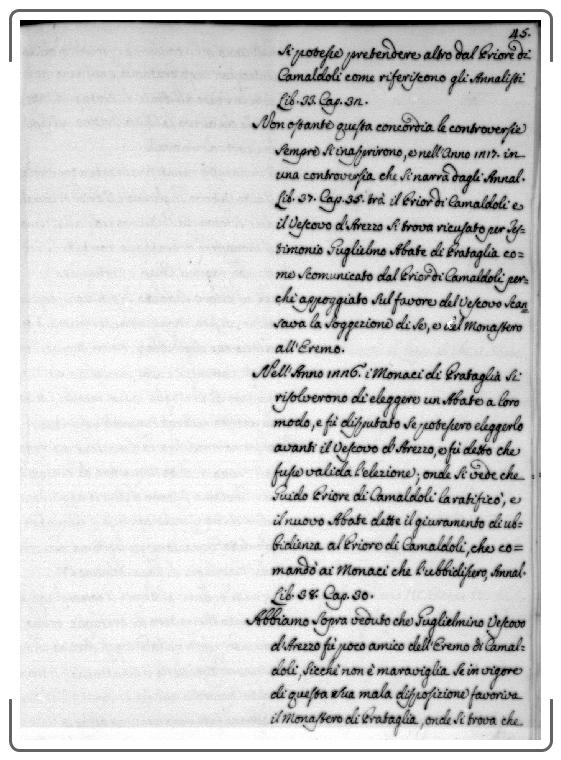 45.
si potesse pretendere altro dal Priore di
Camaldoli come riferiscono gli Annalisti
Lib. 33. Cap. 32.
Non ostante questa concordia le controversie
sempre si inasprirono, e nell'Anno 1217. in
una controversia che si narra dagli Annal.
Lib. 37. Cap. 35. trà il Prior di Camaldoli e
il Vescovo d'Arezzo si trova ricusato per Tes-
timonio Guglielmo Abate di Prataglia co=
me scomunicato dal Prior di Camaldoli per=
chè appoggiato sul favore del Vescovo scan
sava la soggezione di se, e del Monastero
all'Eremo.
Nell'Anno 1226. i Monaci di Prataglia si
risolverono di eleggere un Abate a loro
modo, e fù disputato se potessero eleggerlo
avanti il Vescovo d'Arezzo, e fù detto che
fusse valida l'elezione; onde si vede che
Guido Priore di Camaldoli la ratificò, e
il nuovo Abate dette il giuramento di ub-
bidienza al Priore di Camaldoli, che co=
mandò ai Monaci che l'ubbidissero, Annal.
Lib. 38. Cap. 30.
Abbiamo sopra veduto che Guglielmino Vescovo
d'Arezzo fù poco amico dell'Eremo di Camal-
doli, sicchè non è maraviglia se in vigore
di questa sua mala disposizione favoriva
il Monastero di Prataglia, onde si trova che